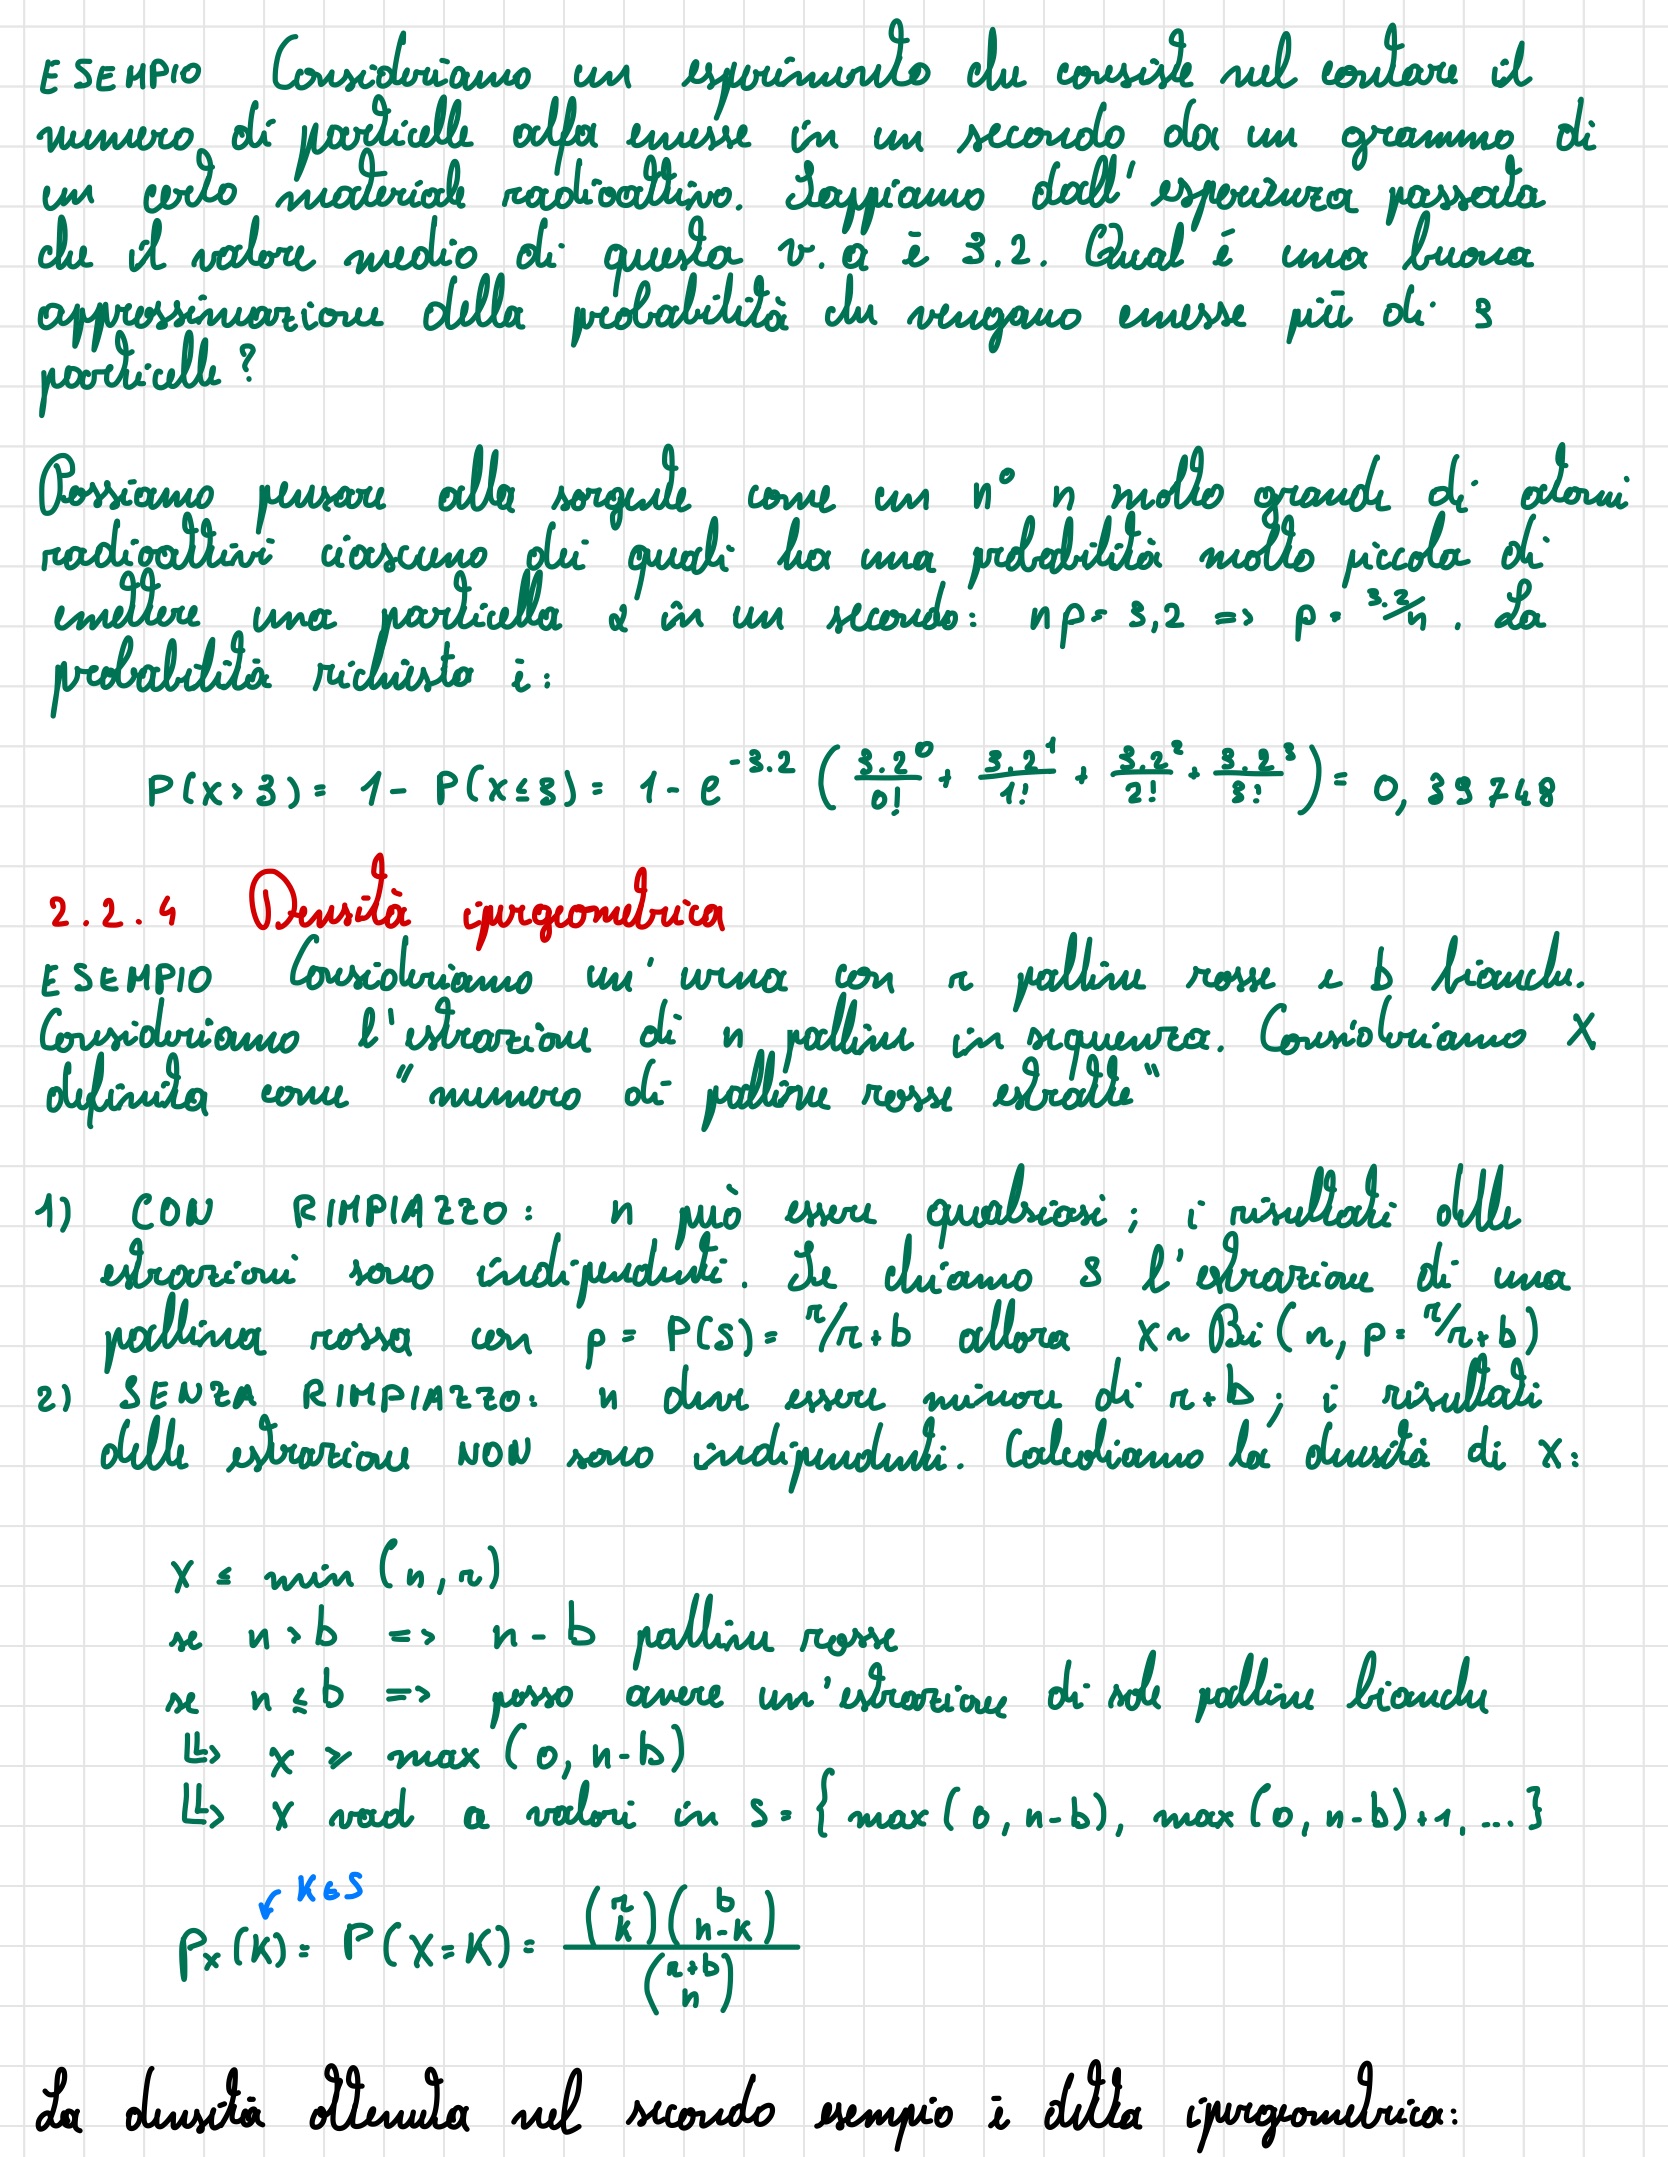 ESEMPIO Consideriamo un esperimento che consiste nel contare il
numero di particelle alfa emesse in un secondo da un grammo di
un certo materiale radioattivo. Sappiamo dall'esperienza passata
che il valore medio di questa v.a è 3.2. Qual è una buona
approssimazione della probabilità che vengano emesse più di 3
particelle?
Possiamo pensare alla sorgente come un n° n molto grande di atomi
radioattivi ciascuno dei quali ha una probabilità molto piccola di
emettere una particella α in un secondo: np = 3,2 => p = 3.2/n. La
probabilità richiesta è:
P(x > 3) = 1 - P(x ≤ 3) = 1 - e^{-3.2} (3.2^0/0! + 3.2^1/1! + 3.2^2/2! + 3.2^3/3!) = 0,39748
2.2.4 Densità ipergeometrica
ESEMPIO Consideriamo un'urna con r palline rosse e b bianche.
Consideriamo l'estrazione di n palline in sequenza. Consideriamo X
definita come "numero di palline rosse estratte"
1) CON RIMPIAZZO: n può essere qualsiasi; i risultati delle
estrazioni sono indipendenti. Se chiamo S l'estrazione di una
pallina rossa con p = P(S) = r/r+b allora X ~ Bi(n, p = r/r+b)
2) SENZA RIMPIAZZO: n deve essere minore di r+b; i risultati
delle estrazione NON sono indipendenti. Calcoliamo la densità di X:
X ≤ min (n, r)
se n > b => n - b palline rosse
se n ≤ b => posso avere un'estrazione di sole palline bianche
↳ x ≥ max (0, n-b)
↳ X vad a valori in S = { max (0, n-b), max (0, n-b)+1, ... }
K ∈ S
P_x(K) = P(X = K) = (r k)(b n-k) / (r+b n)
La densità ottenuta nel secondo esempio è detta ipergeometrica: